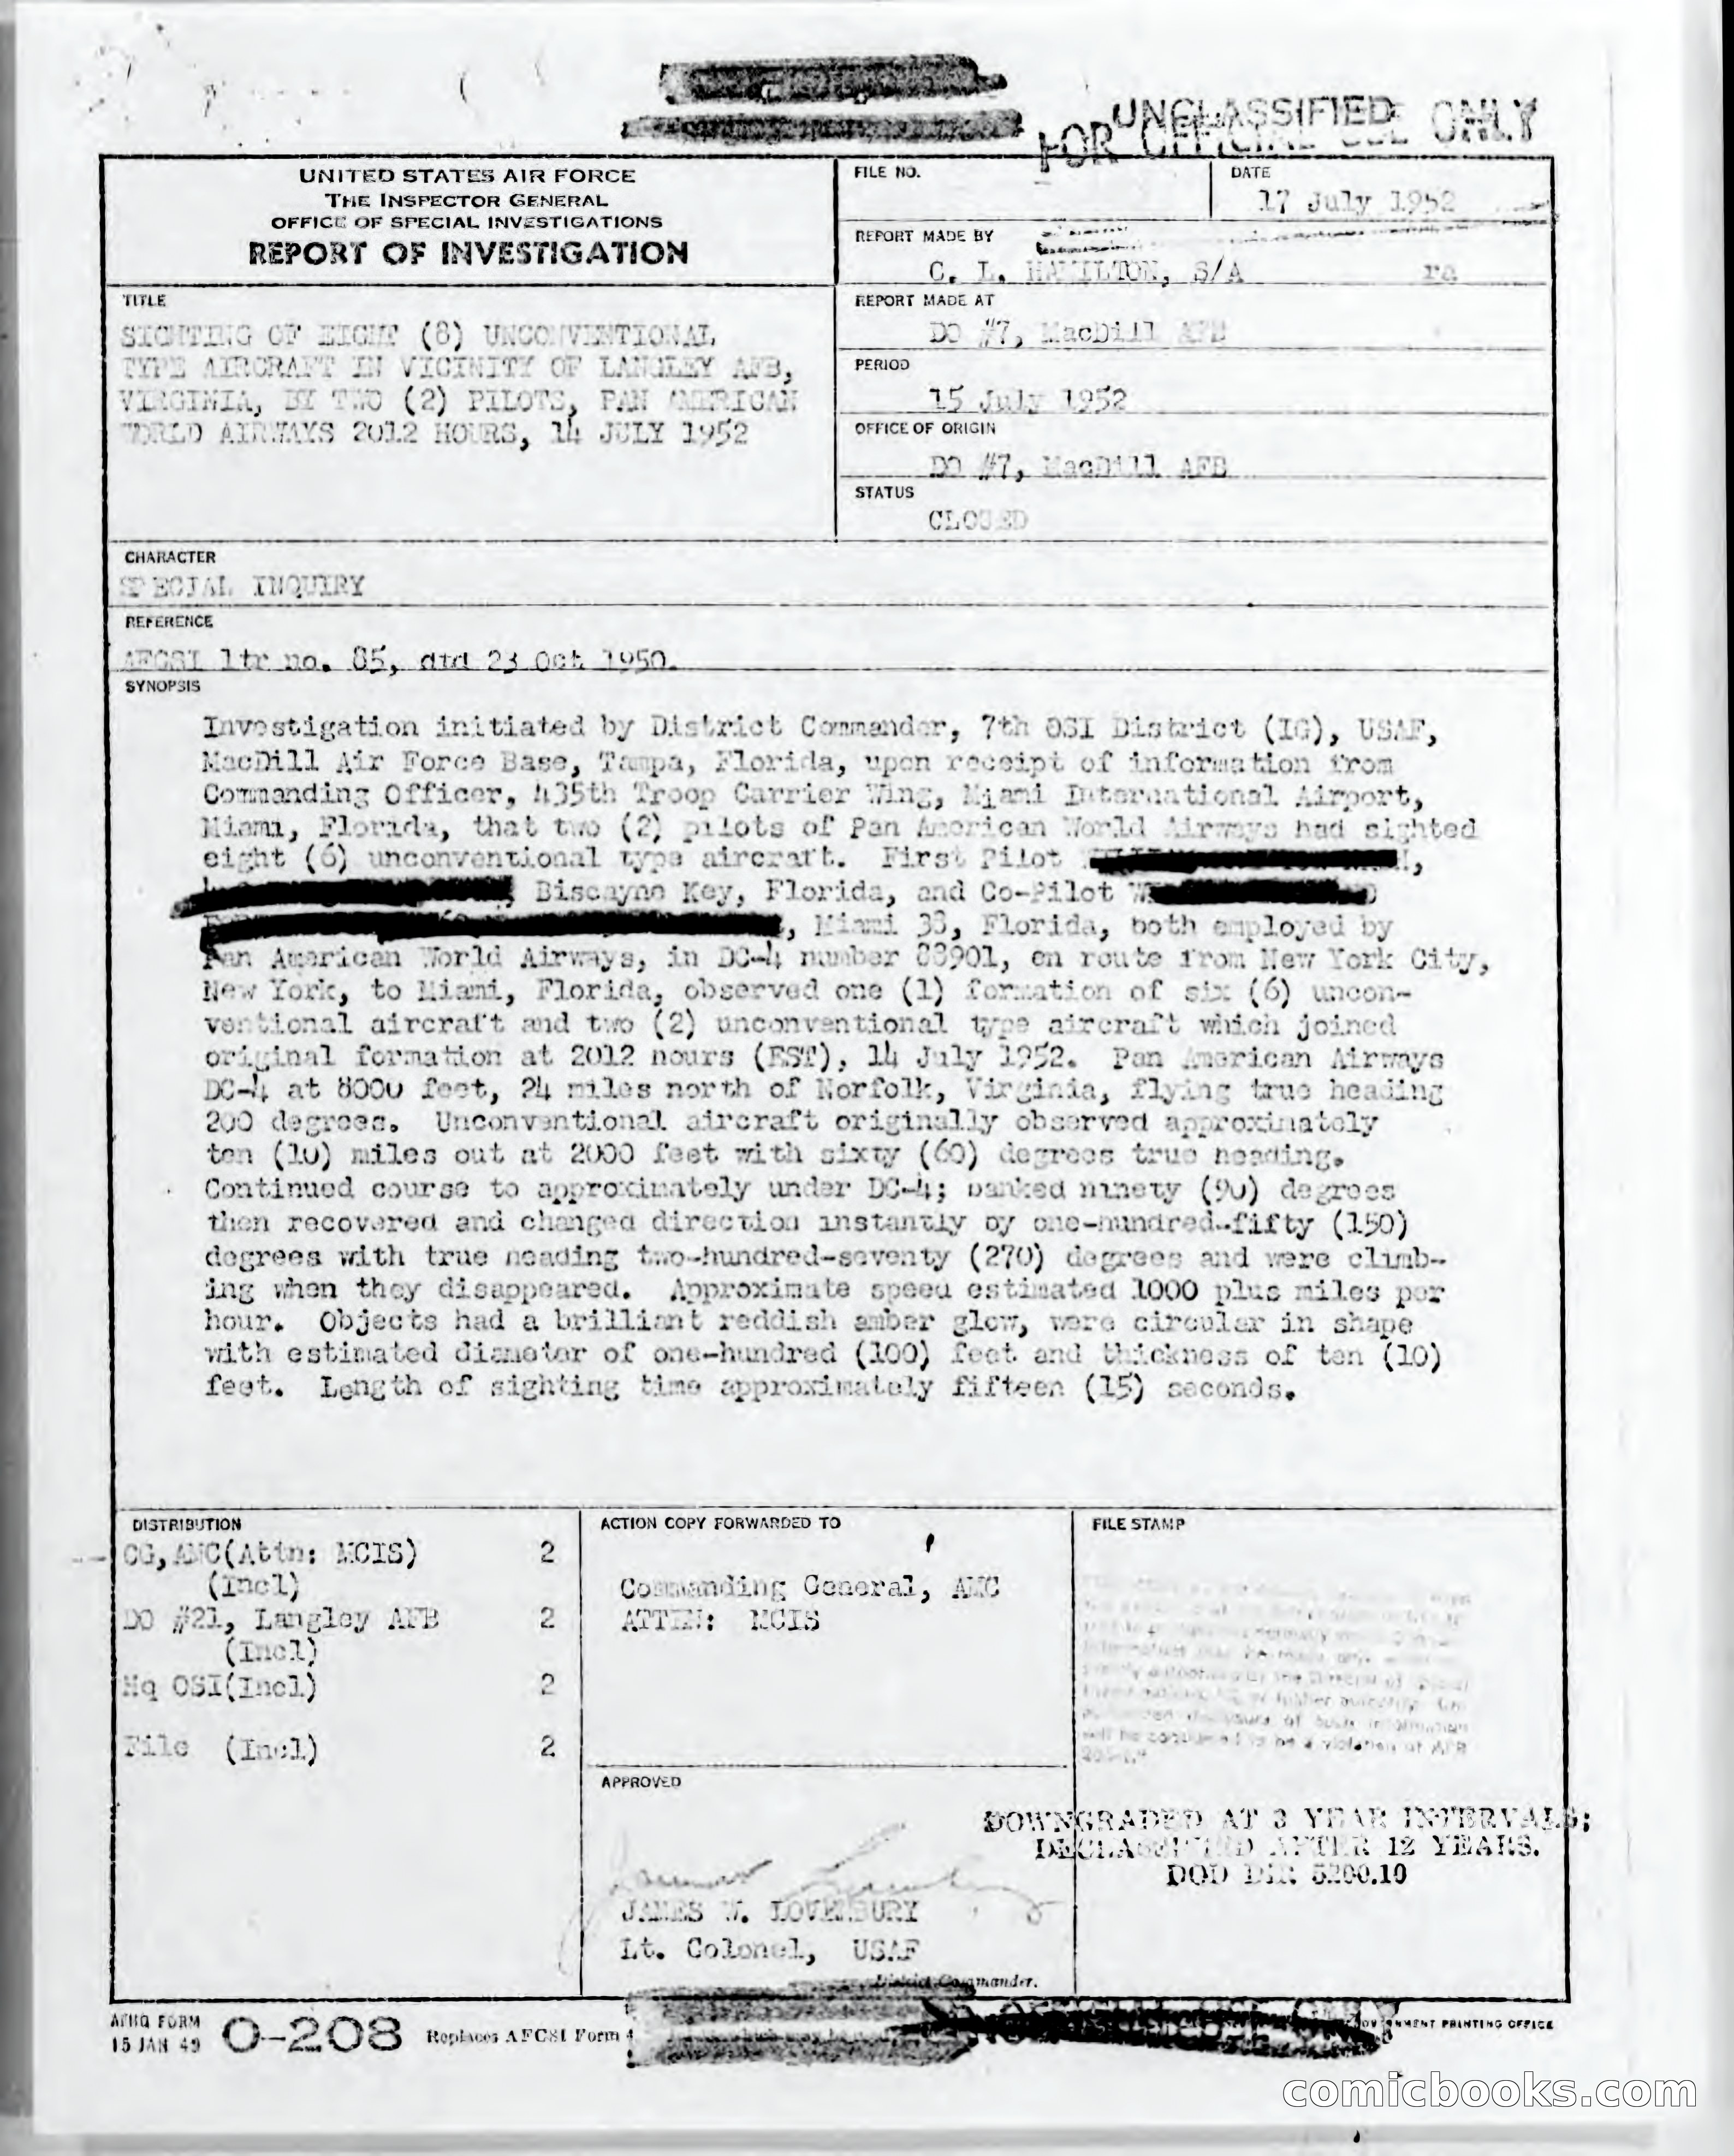 UNCLASSIFIED
FOR OFFICIAL USE ONLY
UNITED STATES AIR FORCE
THE INSPECTOR GENERAL
OFFICE OF SPECIAL INVESTIGATIONS
REPORT OF INVESTIGATION
FILE NO.
DATE
17 July 1952
REPORT MADE BY
C. L. HAMILTON, S/A ra
REPORT MADE AT
DO #7, MacDill AFB
PERIOD
15 July 1952
OFFICE OF ORIGIN
DO #7, MacDill AFB
STATUS
CLOSED
TITLE
SIGHTING OF EIGHT (8) UNCONVENTIONAL
TYPE AIRCRAFT IN VICINITY OF LANGLEY AFB,
VIRGINIA, BY TWO (2) PILOTS, PAN AMERICAN
WORLD AIRWAYS 2012 HOURS, 14 JULY 1952
CHARACTER
SPECIAL INQUIRY
REFERENCE
AFCSI ltr no. 85, dtd 23 Oct 1950.
SYNOPSIS
Investigation initiated by District Commander, 7th OSI District (IG), USAF,
MacDill Air Force Base, Tampa, Florida, upon receipt of information from
Commanding Officer, 435th Troop Carrier Wing, Miami International Airport,
Miami, Florida, that two (2) pilots of Pan American World Airways had sighted
eight (8) unconventional type aircraft. First Pilot
, Biscayne Key, Florida, and Co-Pilot W
, Miami 38, Florida, both employed by
Pan American World Airways, in DC-4 number 88901, en route from New York City,
New York, to Miami, Florida, observed one (1) formation of six (6) uncon-
ventional aircraft and two (2) unconventional type aircraft which joined
original formation at 2012 hours (EST), 14 July 1952. Pan American Airways
DC-4 at 8000 feet, 24 miles north of Norfolk, Virginia, flying true heading
200 degrees. Unconventional aircraft originally observed approximately
ten (10) miles out at 2000 feet with sixty (60) degrees true heading.
Continued course to approximately under DC-4; banked ninety (90) degrees
then recovered and changed direction instantly by one-hundred-fifty (150)
degrees with true heading two-hundred-seventy (270) degrees and were climb-
ing when they disappeared. Approximate speed estimated 1000 plus miles per
hour. Objects had a brilliant reddish amber glow, were circular in shape
with estimated diameter of one-hundred (100) feet and thickness of ten (10)
feet. Length of sighting time approximately fifteen (15) seconds.
DISTRIBUTION
CG, AMC(Attn: MCIS) 2
(Incl)
DO #21, Langley AFB 2
(Incl)
Hq OSI(Incl) 2
File (Incl) 2
ACTION COPY FORWARDED TO
Commanding General, AMC
ATTEN: MCIS
APPROVED
JAMES W. LOVENBURY
Lt. Colonel, USAF
District Commander.
FILE STAMP
will be construed to be a violation of AFR
DOWNGRADED AT 3 YEAR INTERVALS;
DECLASSIFIED AFTER 12 YEARS.
DOD DIR 5200.10
AFHQ FORM
15 JAN 49 O-208 Replaces AFCSI Form 4
GOVERNMENT PRINTING OFFICE
comicbooks.com